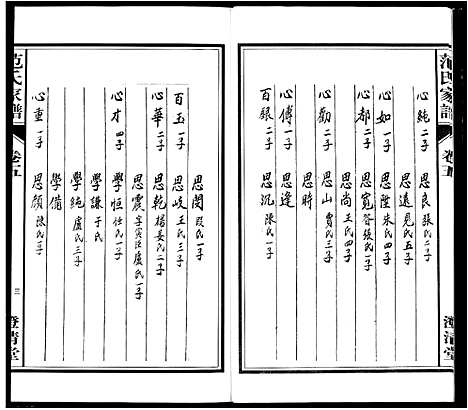 范氏家譜
卷五
澄清堂
心純 二子
思良 張氏二子
思遠 見氏五子
心如 一子
思陞 朱氏四子
心都 二子
思寬 谷張氏一子
思尚 王氏四子
心勸 二子
思山 賈氏三子
思時
心傅 一子
思逢
百銀 二子
思汎 陳氏一子
思閔 段氏一子
百玉 一子
思岐 王氏三子
心華 二子
思乾 楊姜氏二子
思震 盧氏一子
心才 四子
學恒 任氏一子
學謙 于氏
學純 盧氏三子
學備
心重 一子
思顏 陳氏三子
范氏家譜
卷五
三
澄清堂